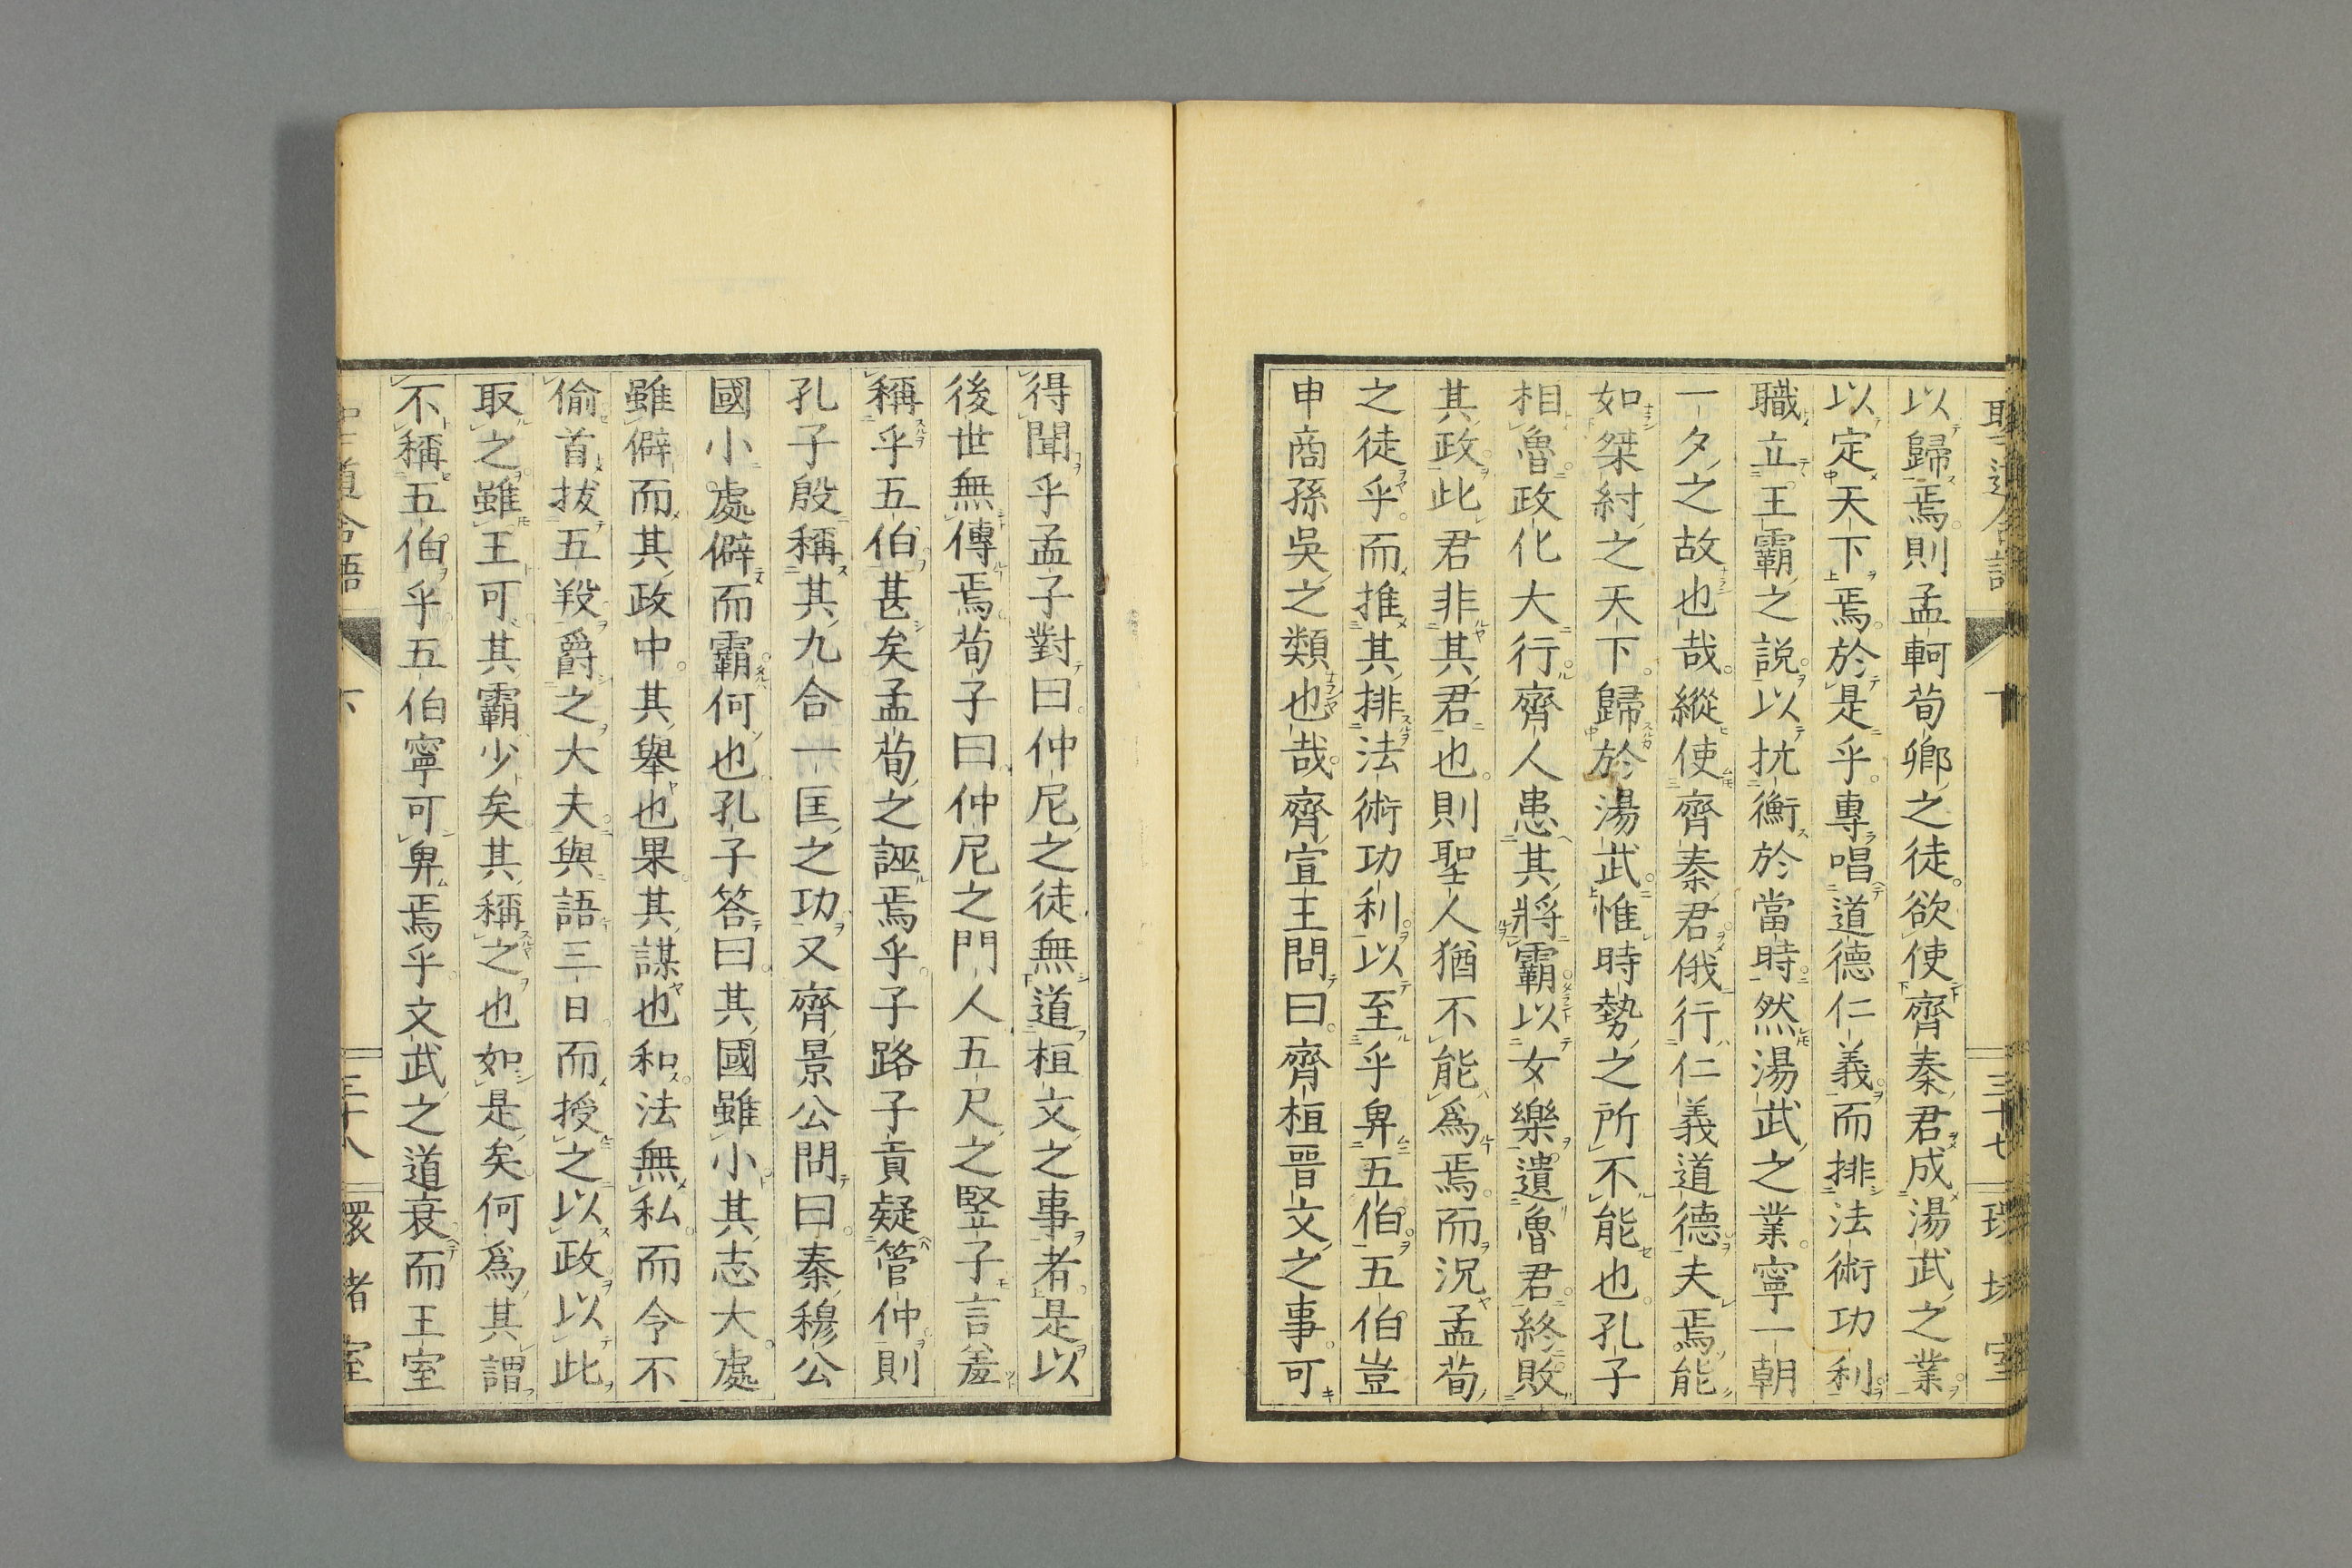 以歸焉則孟軻荀卿之徒欲使齊秦君成湯武之業
以定天下焉於是乎專唱道德仁義而排法術功利
職立王霸之說以抗衡於當時然湯武之業寧一朝
一夕之故也哉縱使齊秦君俄行仁義道德夫焉能
如桀紂之天下歸於湯武惟時勢之所不能也孔子
相魯政化大行齊人患其將霸以女樂遺魯君終敗
其政此君非其君也則聖人猶不能爲焉而況孟荀
之徒乎而推其排法術功利以至乎卑五伯五伯豈
申商孫吳之類也哉齊宣王問曰齊桓晉文之事可
得聞乎孟子對曰仲尼之徒無道桓文之事者是以
後世無傳焉荀子曰仲尼之門人五尺之豎子言羞
稱乎五伯甚矣孟荀之誣焉乎子路子貢疑管仲則
孔子殷稱其九合一匡之功又齊景公問曰秦穆公
國小處僻而霸何也孔子答曰其國雖小其志大處
雖僻而其政中其舉也果其謀也和法無私而令不
偷首拔五羖爵之大夫與語三日而授之以政以此
取之雖王可其霸少矣其稱之也如是矣何爲其謂
不稱五伯乎五伯寧可卑焉乎文武之道衰而王室